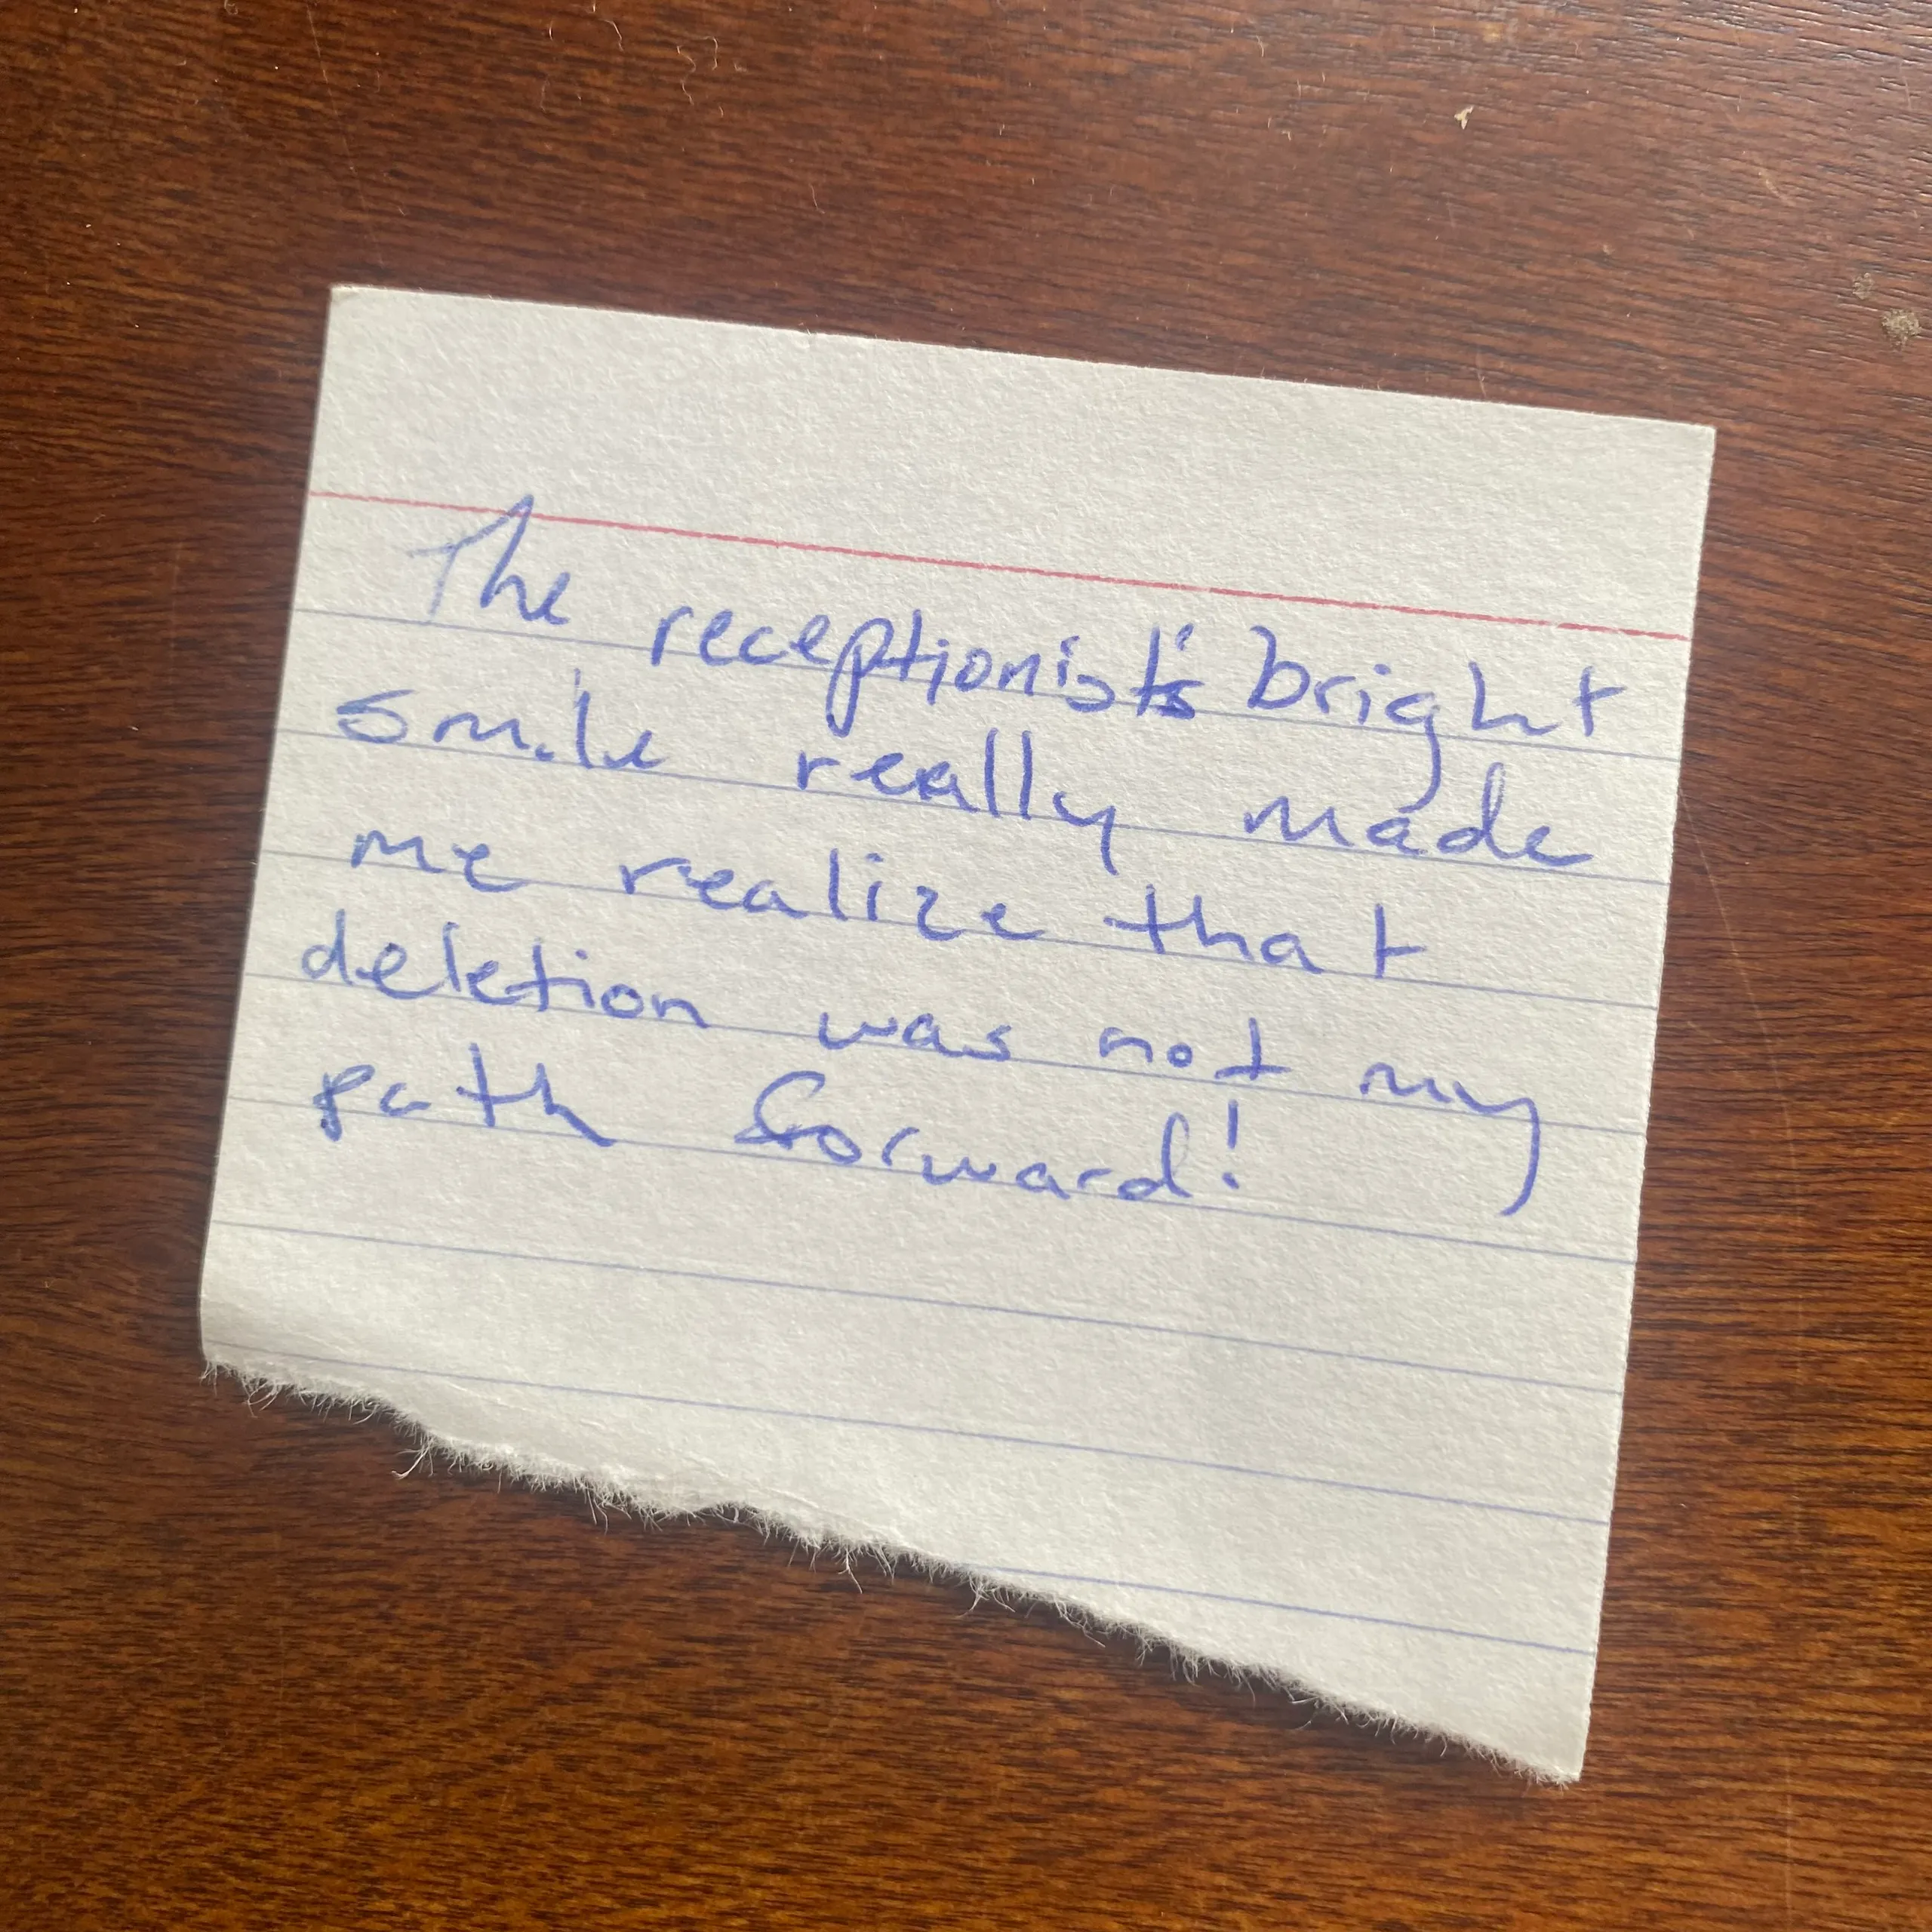 The receptionist's bright
smile really made
me realize that
deletion was not my
path forward!